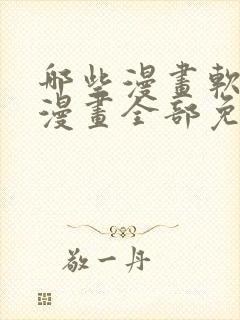 那些漫畫軟
漫畫全部免
敬一丹